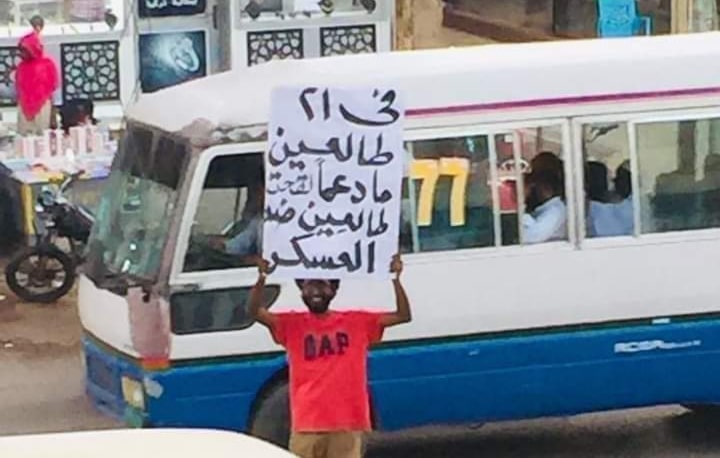 فى ٢١
طالعين
ما دعماً لقحت
طالعين ضد
العسكر
77
GAP
ROSA